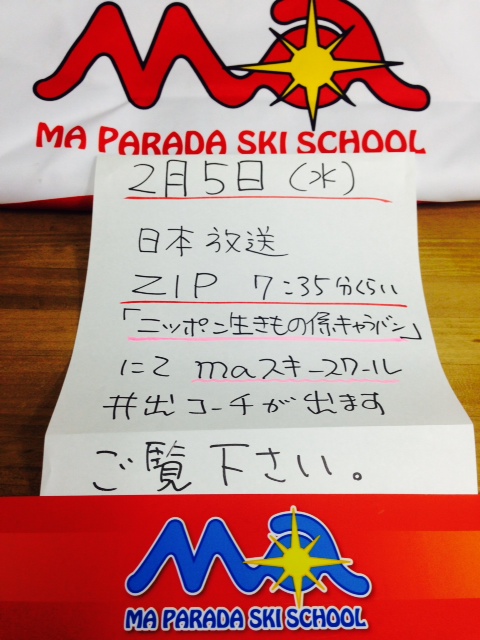 Ma
MA PARADA SKI SCHOOL
2月5日(水)
日本放送
ZIP 7:35分くらい
「ニッポン生きもの係キャラバン」
にて maスキースクール
井出コーチが出ます
ご覧下さい。
Ma
MA PARADA SKI SCHOOL